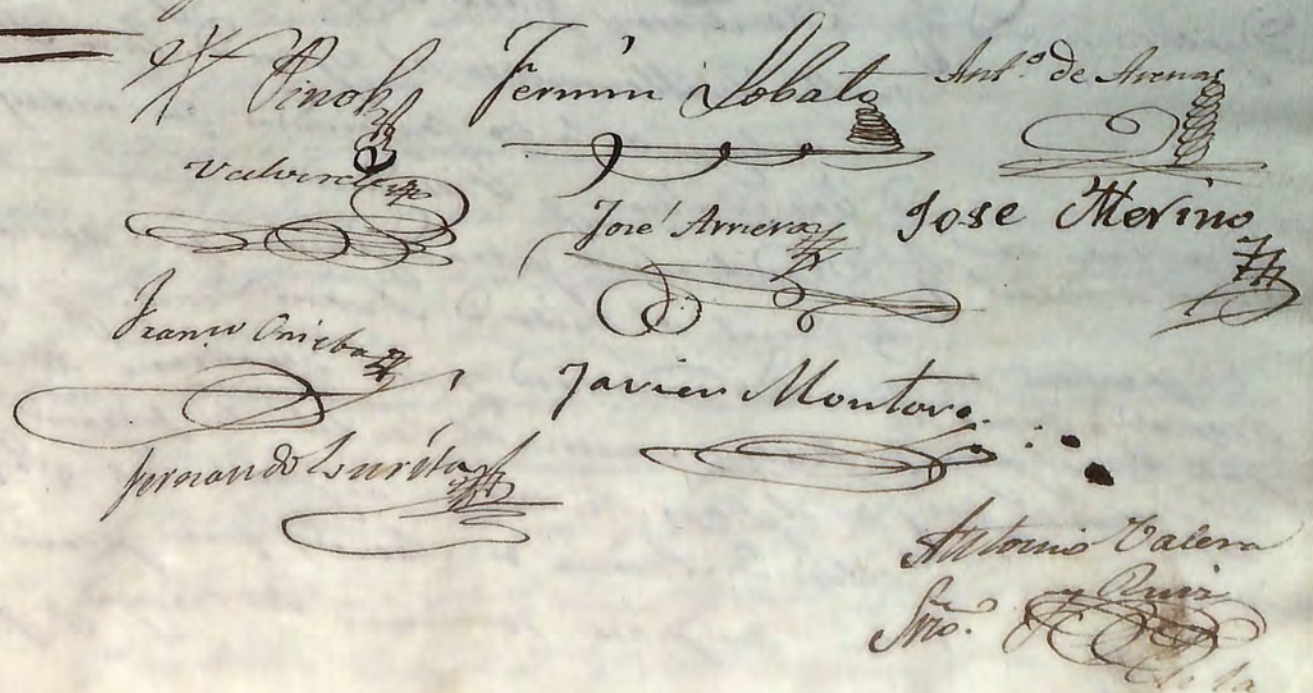 Pinol Fermin Lobato Ant.º de Arenas
Valverde José Arriero Jose Merino
Franco Javier Montoro
Fernando Zurita
Antonio Valera
y Ruiz
Srio.